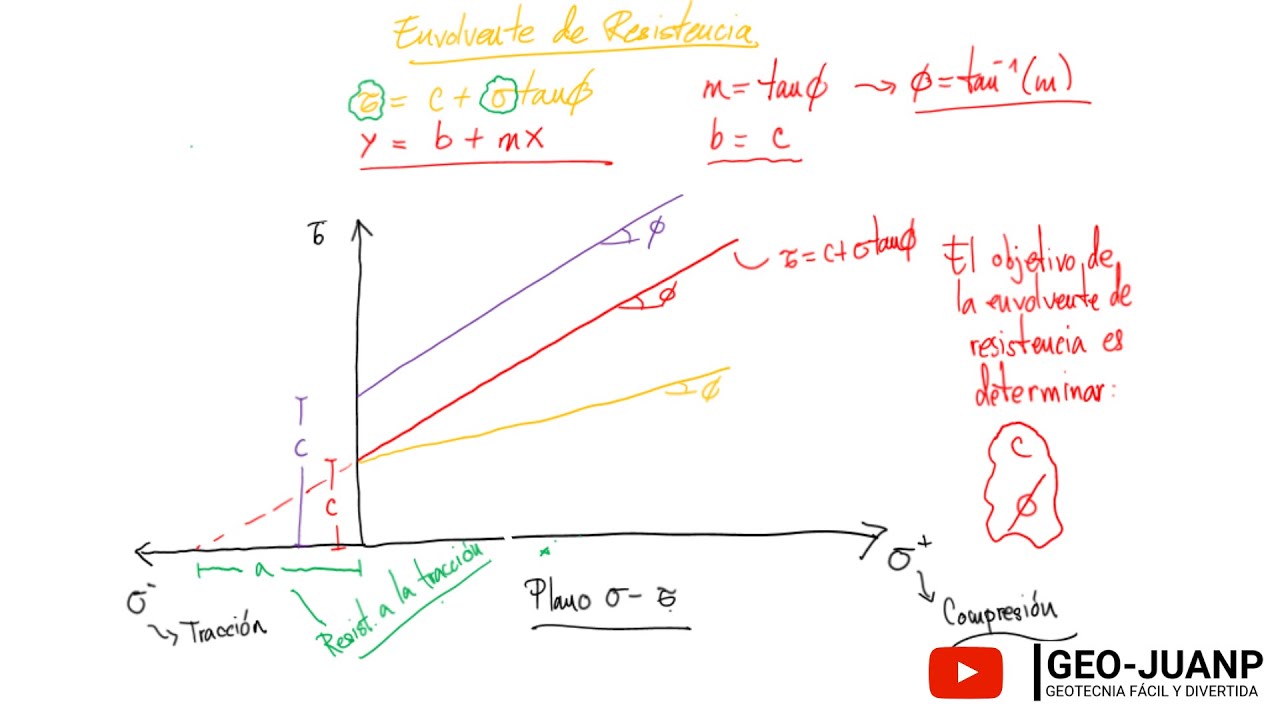 Envolvente de Resistencia
τ = c + σ tanϕ
y = b + mx
m = tanϕ → ϕ = tan⁻¹(m)
b = c
τ
ϕ
ϕ
τ = c + σ tanϕ
ϕ
El objetivo de
la envolvente de
resistencia es
determinar:
c
ϕ
C
C
a
σ⁻
Tracción
Resist. a la tracción
Plano σ - τ
σ⁺
Compresión
GEO-JUANP
GEOTECNIA FÁCIL Y DIVERTIDA